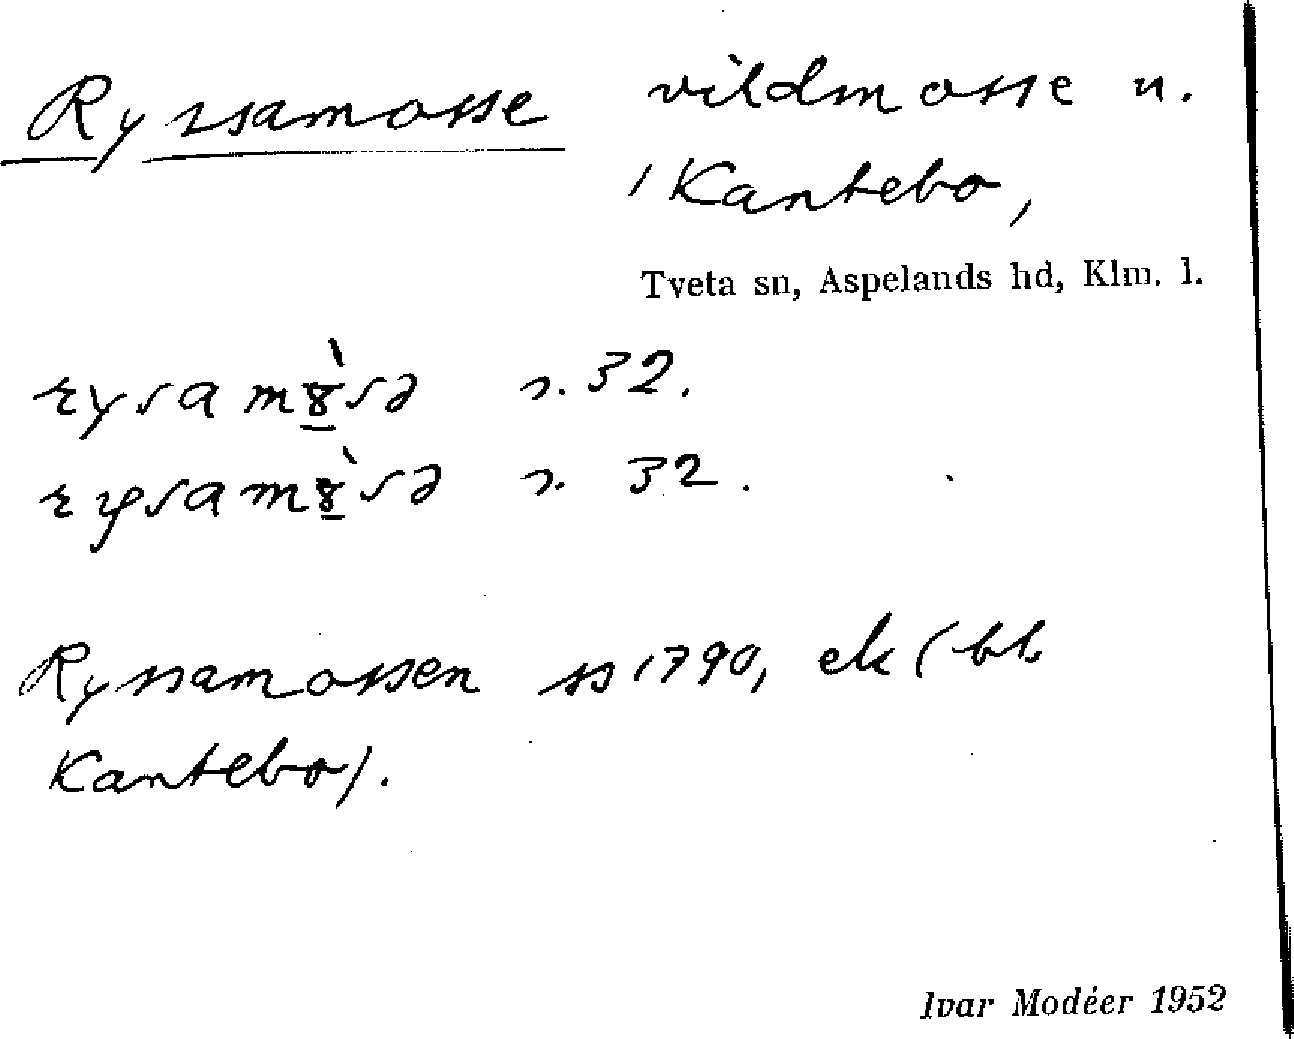 Ryssamosse vildmosse n.
/ Kantebo,
Tveta sn, Aspelands hd, Klm. l.
rysamȣ̀sə s. 32.
s. 32.
Ryssamossen ss 1790, ek (bl.
Kantebo).
Ivar Modéer 1952